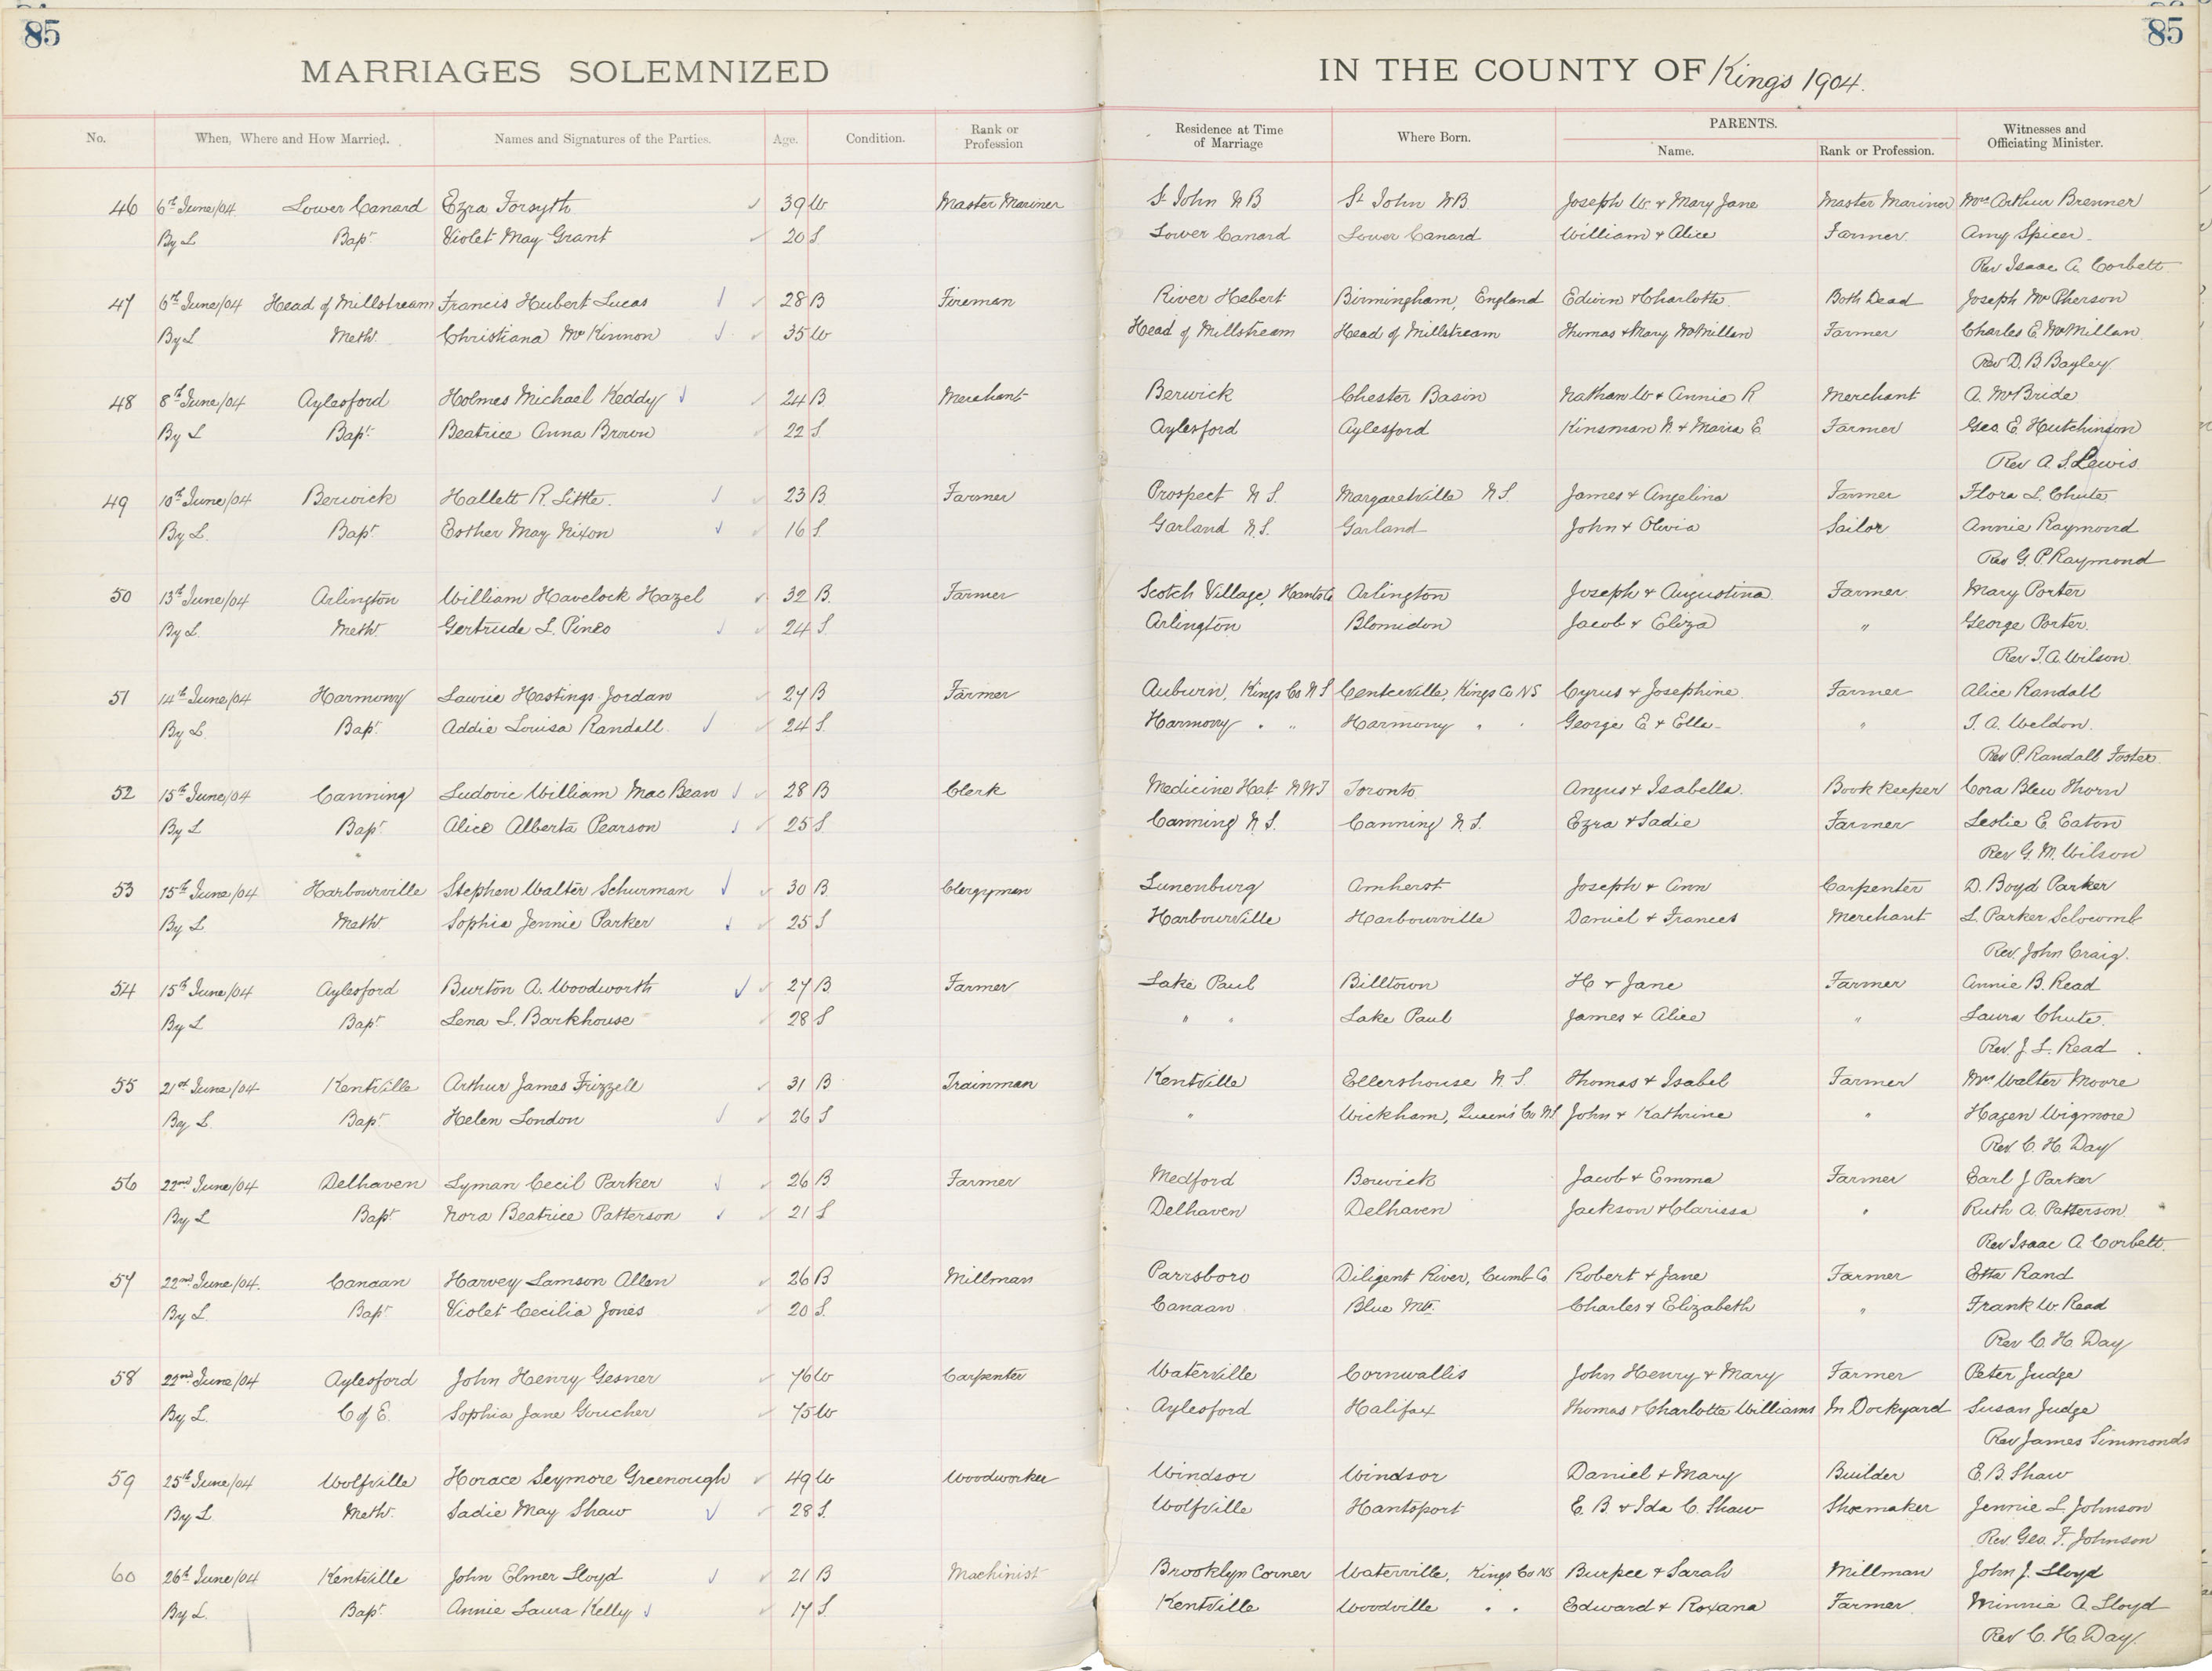 85
85
MARRIAGES SOLEMNIZED IN THE COUNTY OF Kings 1904.
No. When, Where and How Married. Names and Signatures of the Parties. Age. Condition. Rank or Profession Residence at Time of Marriage Where Born. PARENTS. Name. Rank or Profession. Witnesses and Officiating Minister.
46 6th June/04 Lower Canard Ezra Forsyth 39 W Master Mariner St John N B St John N B Joseph W. + Mary Jane Master Mariner Mrs Arthur Brenner
By L Bapt Violet May Grant 20 S Lower Canard Lower Canard William + Alice Farmer Amy Spicer
Rev Isaac A. Corbett
47 6th June/04 Head of Millstream Francis Hubert Lucas 28 B Fireman River Hebert Birmingham, England Edwin + Charlotte Both Dead Joseph McPherson
By L Meth. Christiana McKinnon 35 W Head of Millstream Head of Millstream Thomas + Mary McMillan Farmer Charles E. McMillan
Rev D. B. Bayley
48 8th June/04 Aylesford Holmes Michael Keddy 24 B Merchant Berwick Chester Basin Nathan W + Annie R Merchant A. McBride
By L Bapt. Beatrice Anna Brown 22 S. Aylesford Aylesford Kinsman N. + Maria E. Farmer Geo. E. Hutchinson
Rev A. S. Lewis
49 10th June/04 Berwick Hallett R. Little. 23 B. Farmer Prospect N S. Margaretville N S. James + Angelina Farmer Flora L. Chute
By L. Bapt Esther May Nixon 16 S. Garland N. S. Garland John + Olivia Sailor Annie Raymond
Rev G. P. Raymond
50 13th June/04 Arlington William Havelock Hazel 32 B. Farmer Scotch Village, Hants Co Arlington Joseph + Augustina Farmer Mary Porter
By L. Meth. Gertrude L. Pineo 24 S. Arlington Blomidon Jacob + Eliza " George Porter.
Rev J. A. Wilson
51 14th June/04 Harmony Lawrie Hastings Jordan 27 B Farmer Auburn, Kings Co N S Centreville, Kings Co NS Cyrus + Josephine Farmer Alice Randall
By L. Bapt. Addie Louisa Randall 24 S. Harmony " " Harmony " " George E + Ella " J. A. Weldon.
Rev P. Randall Foster
52 15th June/04 Canning Ludovic William MacBean 28 B Clerk Medicine Hat N W T Toronto Angus + Isabella. Book keeper Cora Blew Thorn
By L Bapt. Alice Alberta Pearson 25 S Canning N. S. Canning N. S. Ezra + Sadie Farmer Leslie E. Eaton
Rev G. M. Wilson
53 15th June/04 Harbourville Stephen Walter Schurman 30 B. Clergyman Lunenburg Amherst Joseph + Ann Carpenter D. Boyd Parker
By L Meth. Sophia Jennie Parker 25 S Harbourville Harbourville Daniel + Frances Merchant L. Parker Slocomb
Rev. John Craig.
54 15th June/04 Aylesford Burton A. Woodworth 27 B. Farmer Lake Paul Billtown H + Jane Farmer Annie B. Read
By L Bapt Lena L. Barkhouse 28 S " " Lake Paul James + Alice " Laura Chute.
Rev. J. L. Read
55 21st June/04 Kentville Arthur James Frizzell 31 B Trainman Kentville Ellershouse N. S. Thomas + Isabel Farmer Mrs Walter Moore
By L. Bapt Helen London 26 S " Wickham, Queen's Co John + Kathrine " Hazen Wigmore
Rev. C. H. Day
56 22nd June/04 Delhaven Lyman Cecil Parker 26 B. Farmer Medford Berwick Jacob + Emma Farmer Earl J Parker
By L Bapt Nora Beatrice Patterson 21 S Delhaven Delhaven Jackson + Clarissa " Ruth A. Patterson
Rev Isaac A. Corbett.
57 22nd June/04. Canaan Harvey Lamson Allen 26 B Millman Parrsboro Diligent River, Cumb Co Robert + Jane Farmer Etta Rand
By L. Bapt. Violet Cecilia Jones 20 S. Canaan Blue Mt. Charles + Elizabeth " Frank W. Read
Rev C. H. Day
58 22nd June/04 Aylesford John Henry Gesner 76 W Carpenter Waterville Cornwallis John Henry + Mary Farmer Peter Judge
By L. C of E. Sophia Jane Goucher 75 W Aylesford Halifax Thomas + Charlotte Williams In Dockyard Susan Judge
Rev James Simmonds
59 25th June/04 Wolfville Horace Seymore Greenough 49 W Woodworker Windsor Windsor Daniel + Mary Builder E. B. Shaw
By L Meth. Sadie May Shaw 28 S. Wolfville Hantsport E. B. + Ida C. Shaw Shoemaker Jennie L. Johnson
Rev. Geo. F. Johnson
60 26th June/04 Kentville John Elmer Lloyd 21 B Machinist Brooklyn Corner Waterville, Kings Co NS Burpee + Sarah Millman John J. Lloyd
By L. Bapt. Annie Laura Kelly 17 S. Kentville Woodville " " Edward + Roxana Farmer Minnie A. Lloyd
Rev C. H. Day.